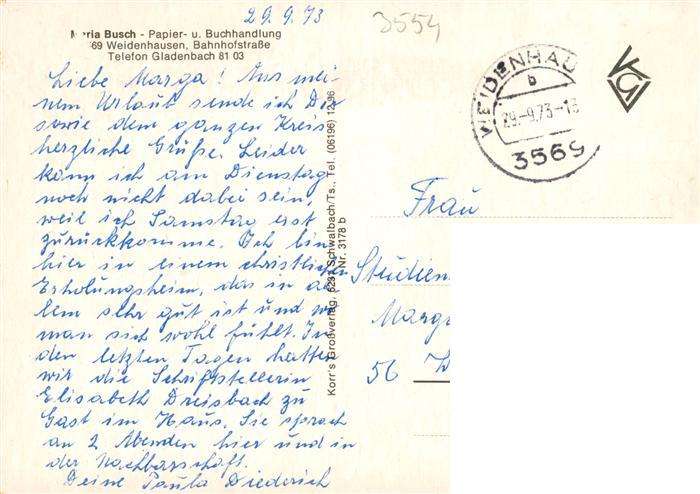 29.9.73
3554
Maria Busch - Papier- u. Buchhandlung
69 Weidenhausen, Bahnhofstraße
Telefon Gladenbach 81 03
Liebe Marga! Aus mei-
nem Urlaub sende ich Dir
sowie dem ganzen Kreis
herzliche Grüße. Leider
kann ich am Dienstag
noch nicht dabei sein,
weil ich Samstag erst
zurückkomme. Ich bin
hier in einem christlichen
Erholungsheim, das in al-
lem sehr gut ist und wo
man sich wohl fühlt. In
den letzten Tagen hatten
wir die Schriftstellerin
Elisabeth Dreisbach zu
Gast im Haus. Sie sprach
an 2 Abenden hier und in
der Nachbarschaft.
Deine Paula Diederich
Korr's Großverlag, 6231 Schwalbach/Ts., Tel. (06196) 12 96
Nr. 3178 b
WEIDENHAU
b
29.-9.73-1
3569
KG
Frau
Studien
Margr
56 W